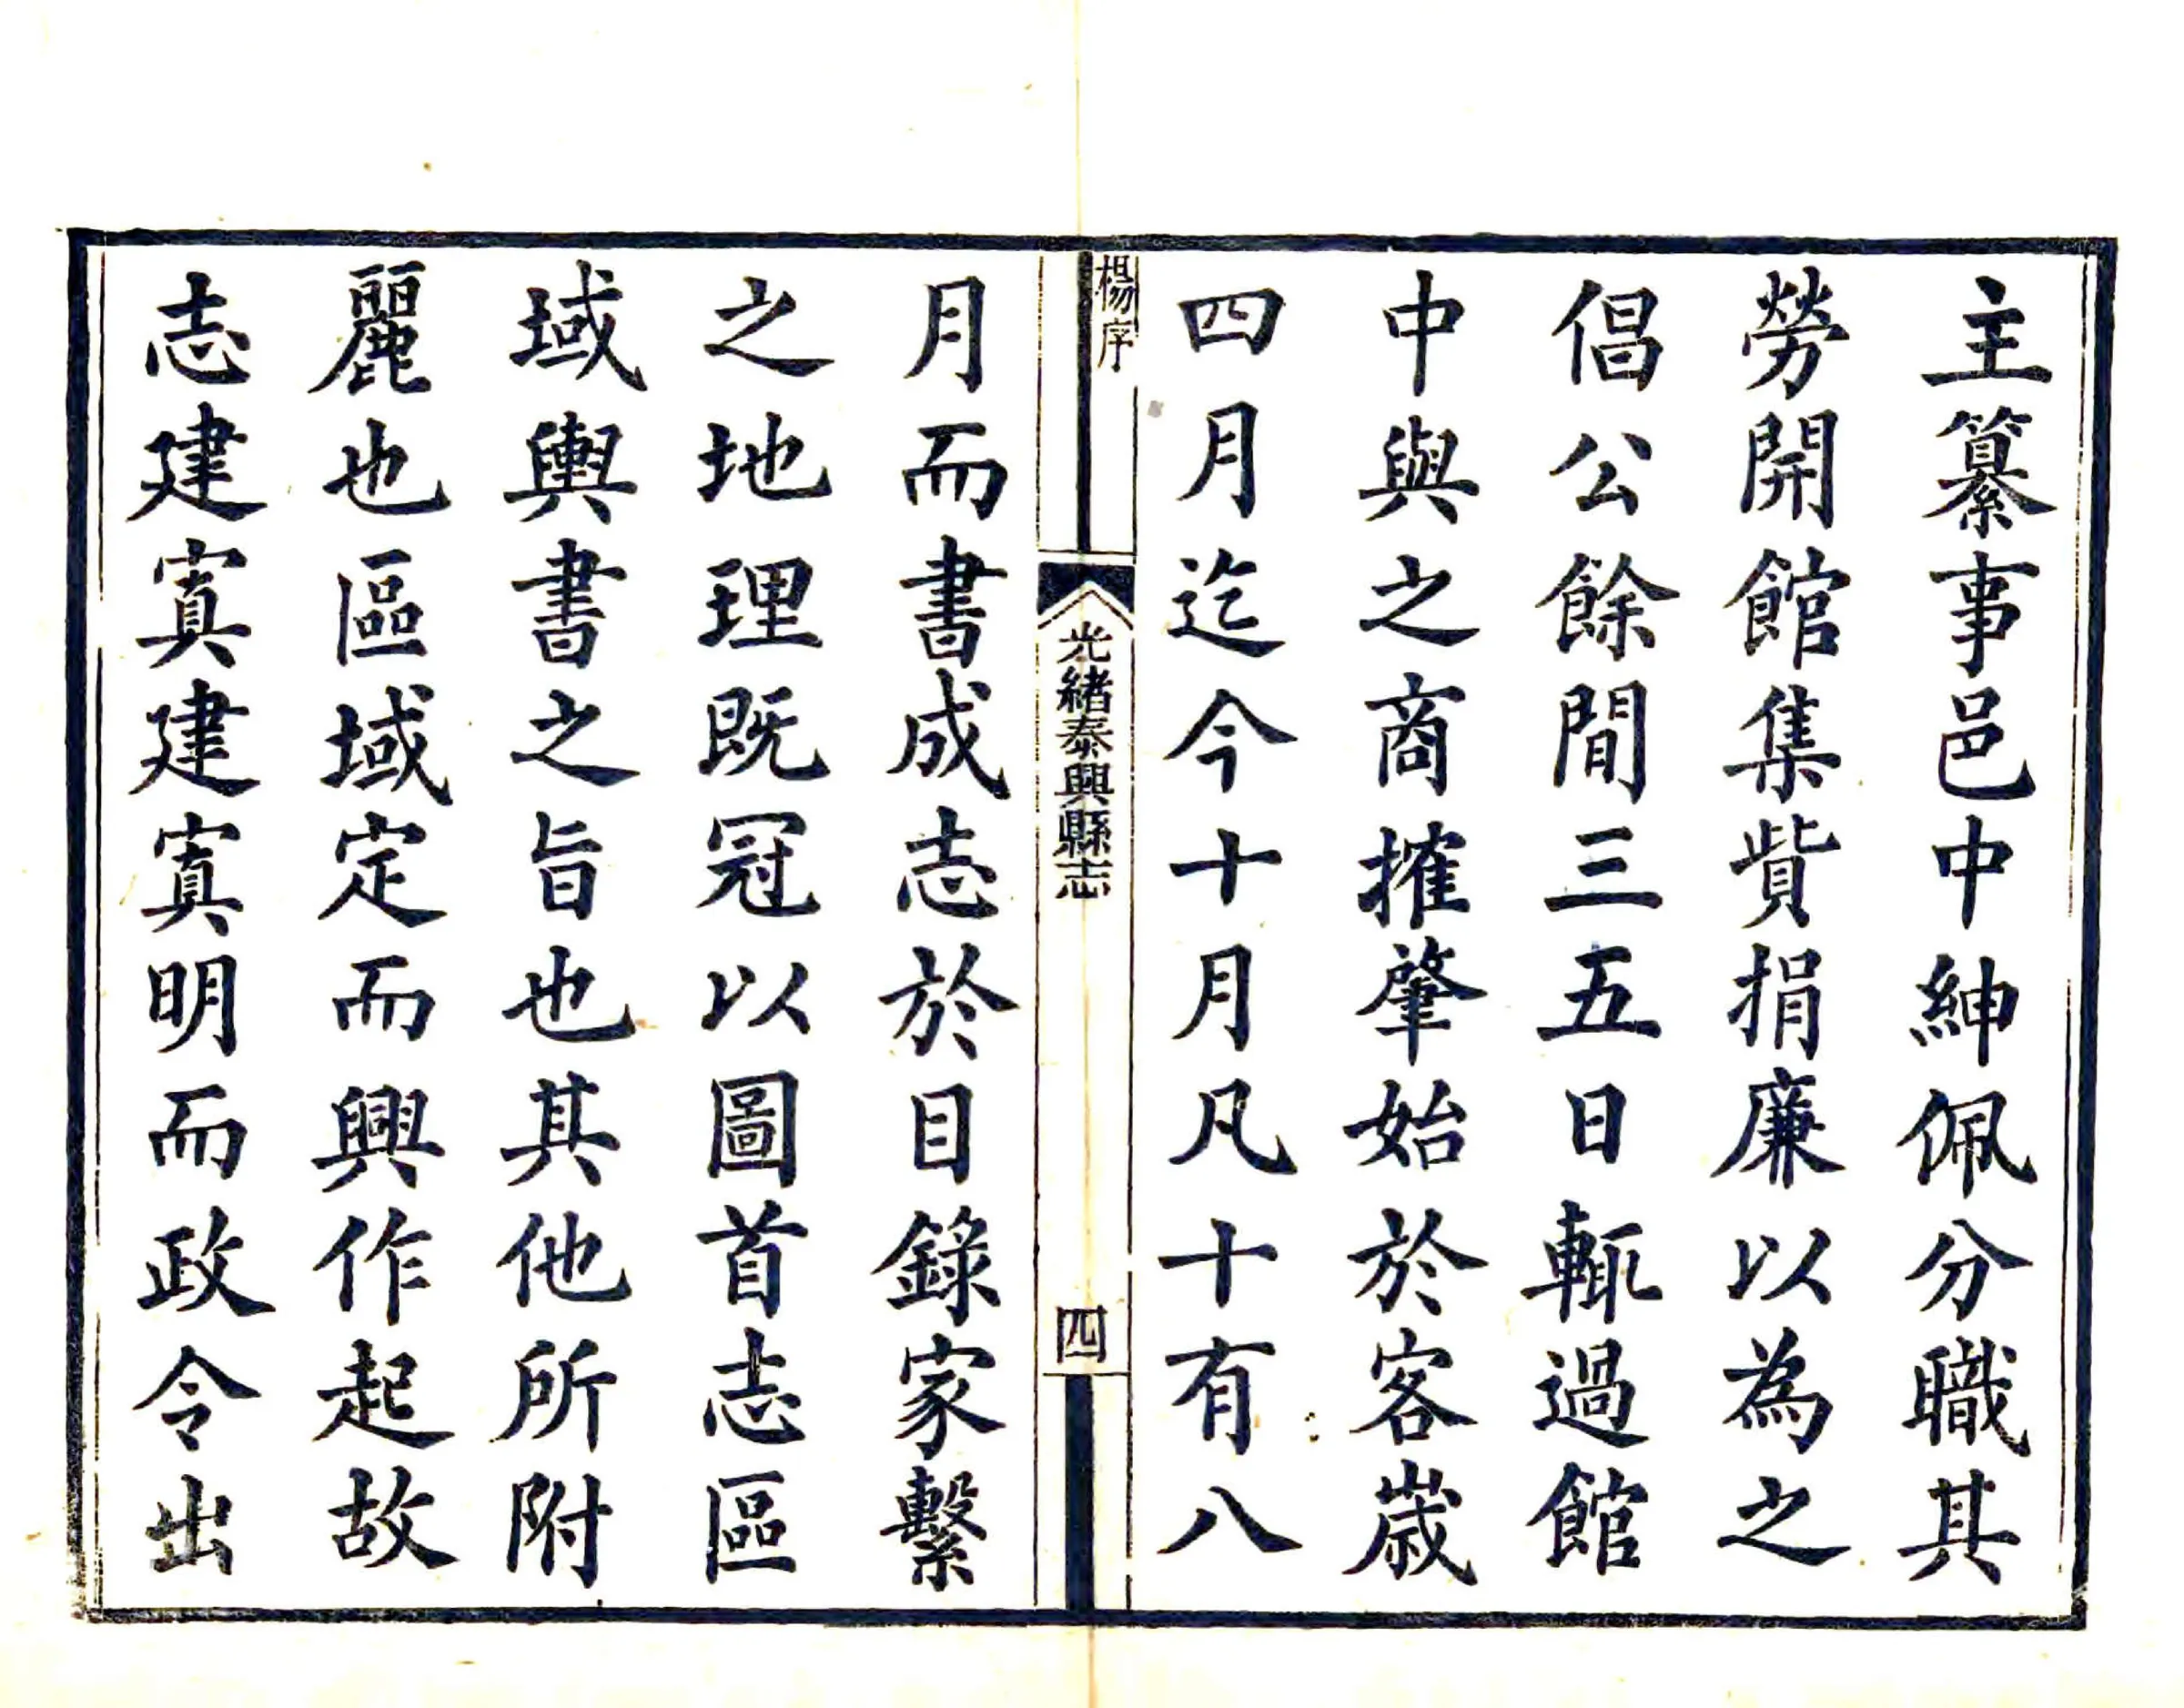 主纂事邑中紳佩分職其
勞開館集貲捐廉以為之
倡公餘間三五日輒過館
中與之商搉肇始於客歲
四月迄今十月凡十有八
楊序
光緒泰興縣志
四
月而書成志於目錄家繫
之地理既冠以圖首志區
域輿書之旨也其他所附
麗也區域定而興作起故
志建寘建寘明而政令出